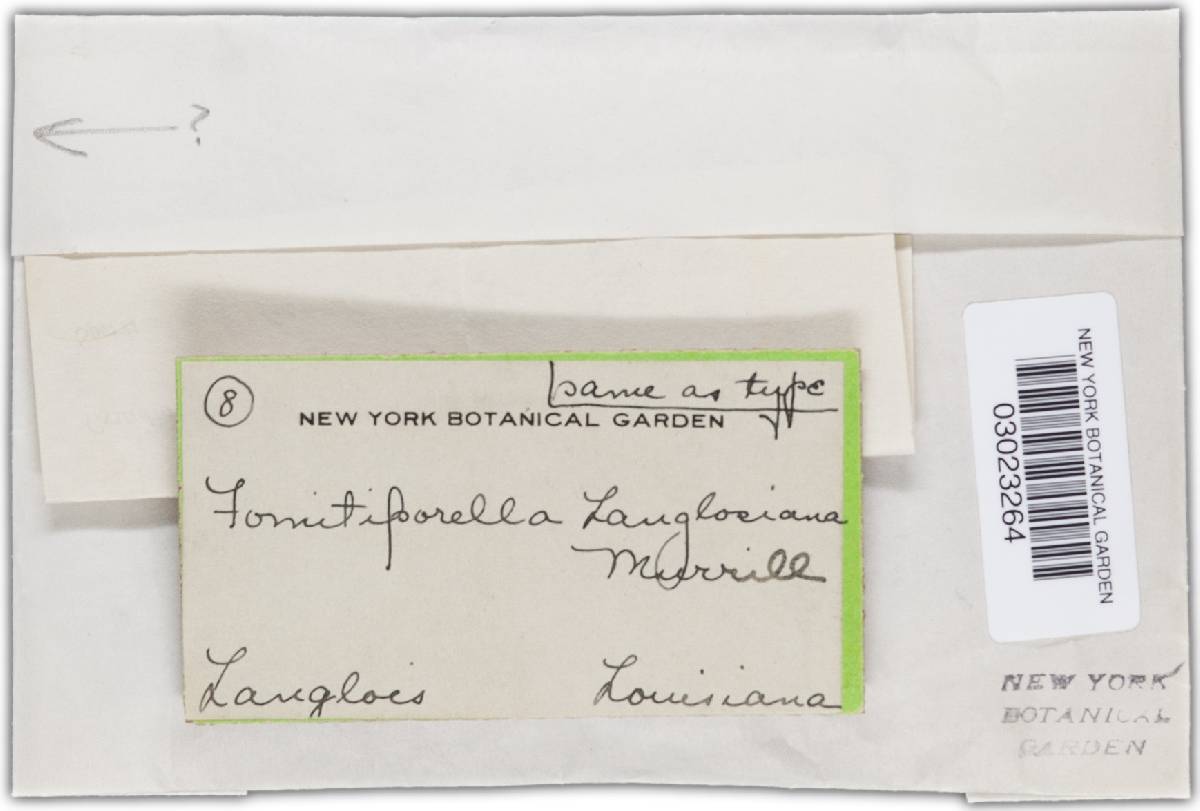 ?
8
same as type
NEW YORK BOTANICAL GARDEN
Fomitiporella Langlosiana
Murrill
Langlois Louisiana
NEW YORK BOTANICAL GARDEN
03023264
NEW YORK
BOTANICAL
GARDEN